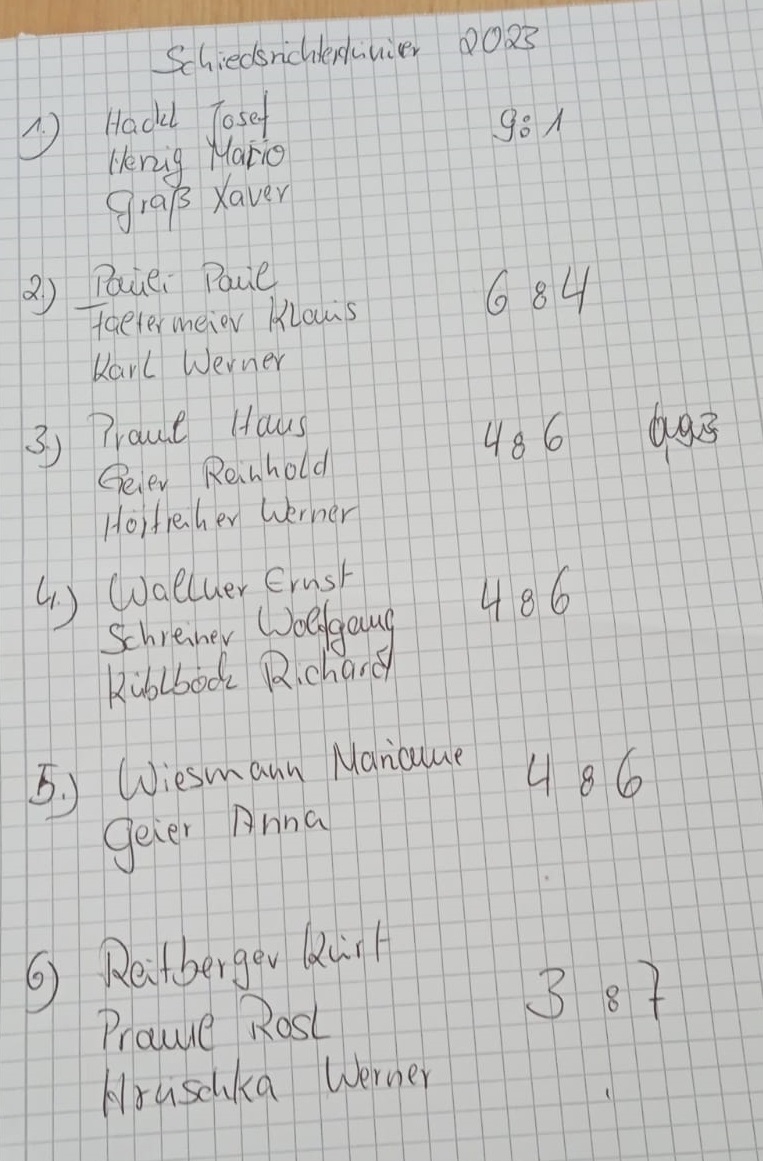 Schiedsrichterturnier 2023
1.) Hackl Josef 9:1
Herzig Mario
Graß Xaver
2.) Paul 6:4
Klaus
Karl Werner
3.) Hans 4:6 0,93
Geier Reinhold
Werner
4.) Wallner Ernst 4:6
Schreiner Wolfgang
Küblböck Richard
5.) Wiesmann Marianne 4:6
Geier Anna
6) Reitberger Kurt 3:7
Rosl
Hruschka Werner